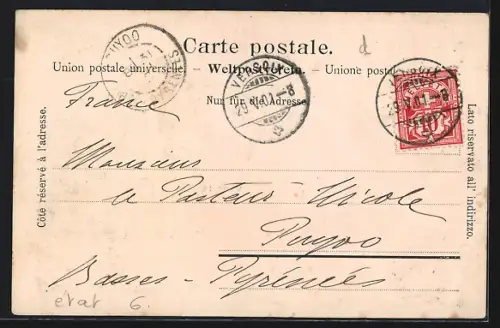 Carte postale.
Union postale universelle. — Weltpostverein. — Unione postale
Nur für die Adresse.
Côté réservé à l'adresse.
Lato riservato all' indirizzo.
PUYOO
VERSOIX
29.V.01.-8
29.V.01.-8
10
d
France
Monsieur
le Pasteur Nicole
Puyoo
Basses-Pyrénées
etat 6.